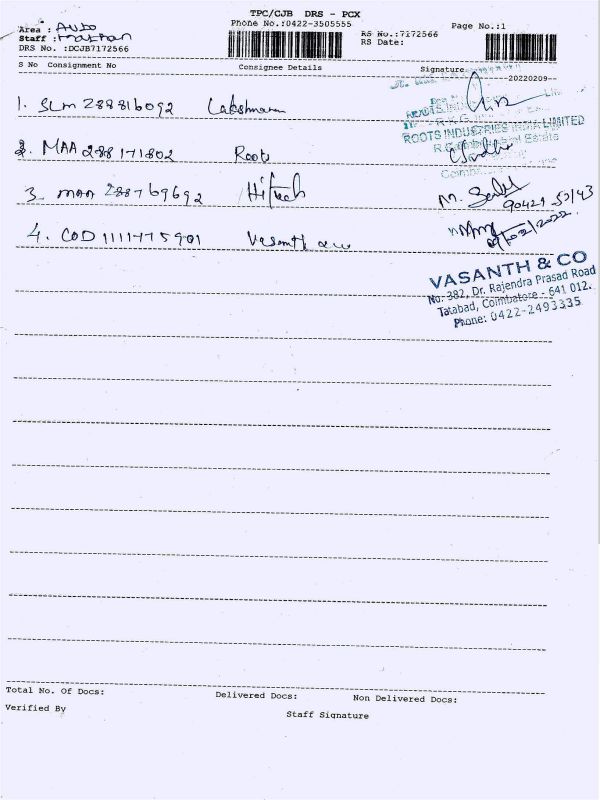 TPC/CJB DRS - PCX
Area : AUTO
Phone No.:0422-3505555
Page No.:1
Staff :
RS No.:7172566
DRS No. :DCJB7172566
RS Date:
S No Consignment No Consignee Details Signature
20220209
1. SLM 288816092 Lakshman
ROOTS INDUSTRIES INDIA LIMITED
2. MAA 288171802 Roots
3. MAA 288769692 Hitech
90421 52143
4. COD 1111775901 Vasanth
09/02/2022
VASANTH & CO
No. 382, Dr. Rajendra Prasad Road
Tatabad, Coimbatore - 641 012.
Phone: 0422-2493335
Total No. Of Docs: Delivered Docs: Non Delivered Docs:
Verified By Staff Signature